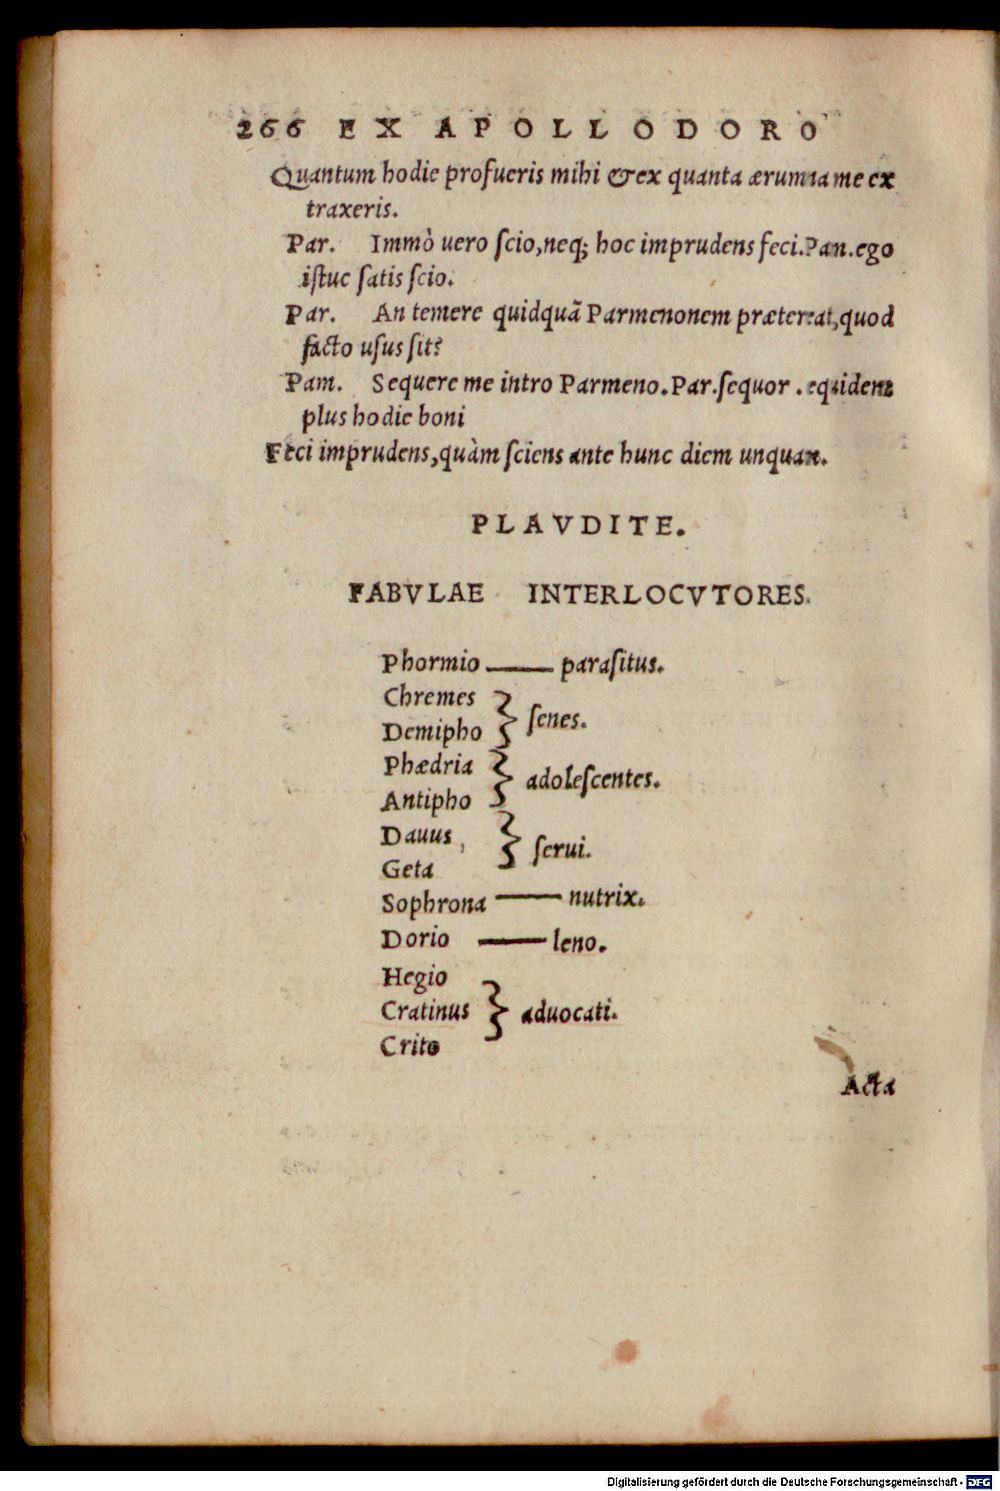 266 EX APOLLODORO
Quantum hodie profueris mihi & ex quanta ærumna me ex
traxeris.
Par. Immò uero ſcio, neq; hoc imprudens feci. Pan. ego
iſtuc ſatis ſcio.
Par. An temere quidquã Parmenonem prætereat, quod
facto uſus ſit?
Pam. Sequere me intro Parmeno. Par. ſequor. equidem
plus hodie boni
Feci imprudens, quàm ſciens ante hunc diem unquam.
PLAVDITE.
FABVLAE INTERLOCVTORES.
Phormio — paraſitus.
Chremes
Demipho } ſenes.
Phædria
Antipho } adoleſcentes.
Dauus,
Geta } ſerui.
Sophrona — nutrix.
Dorio — leno.
Hegio
Cratinus } aduocati.
Crito
Acta
Digitalisierung gefördert durch die Deutsche Forschungsgemeinschaft - DFG